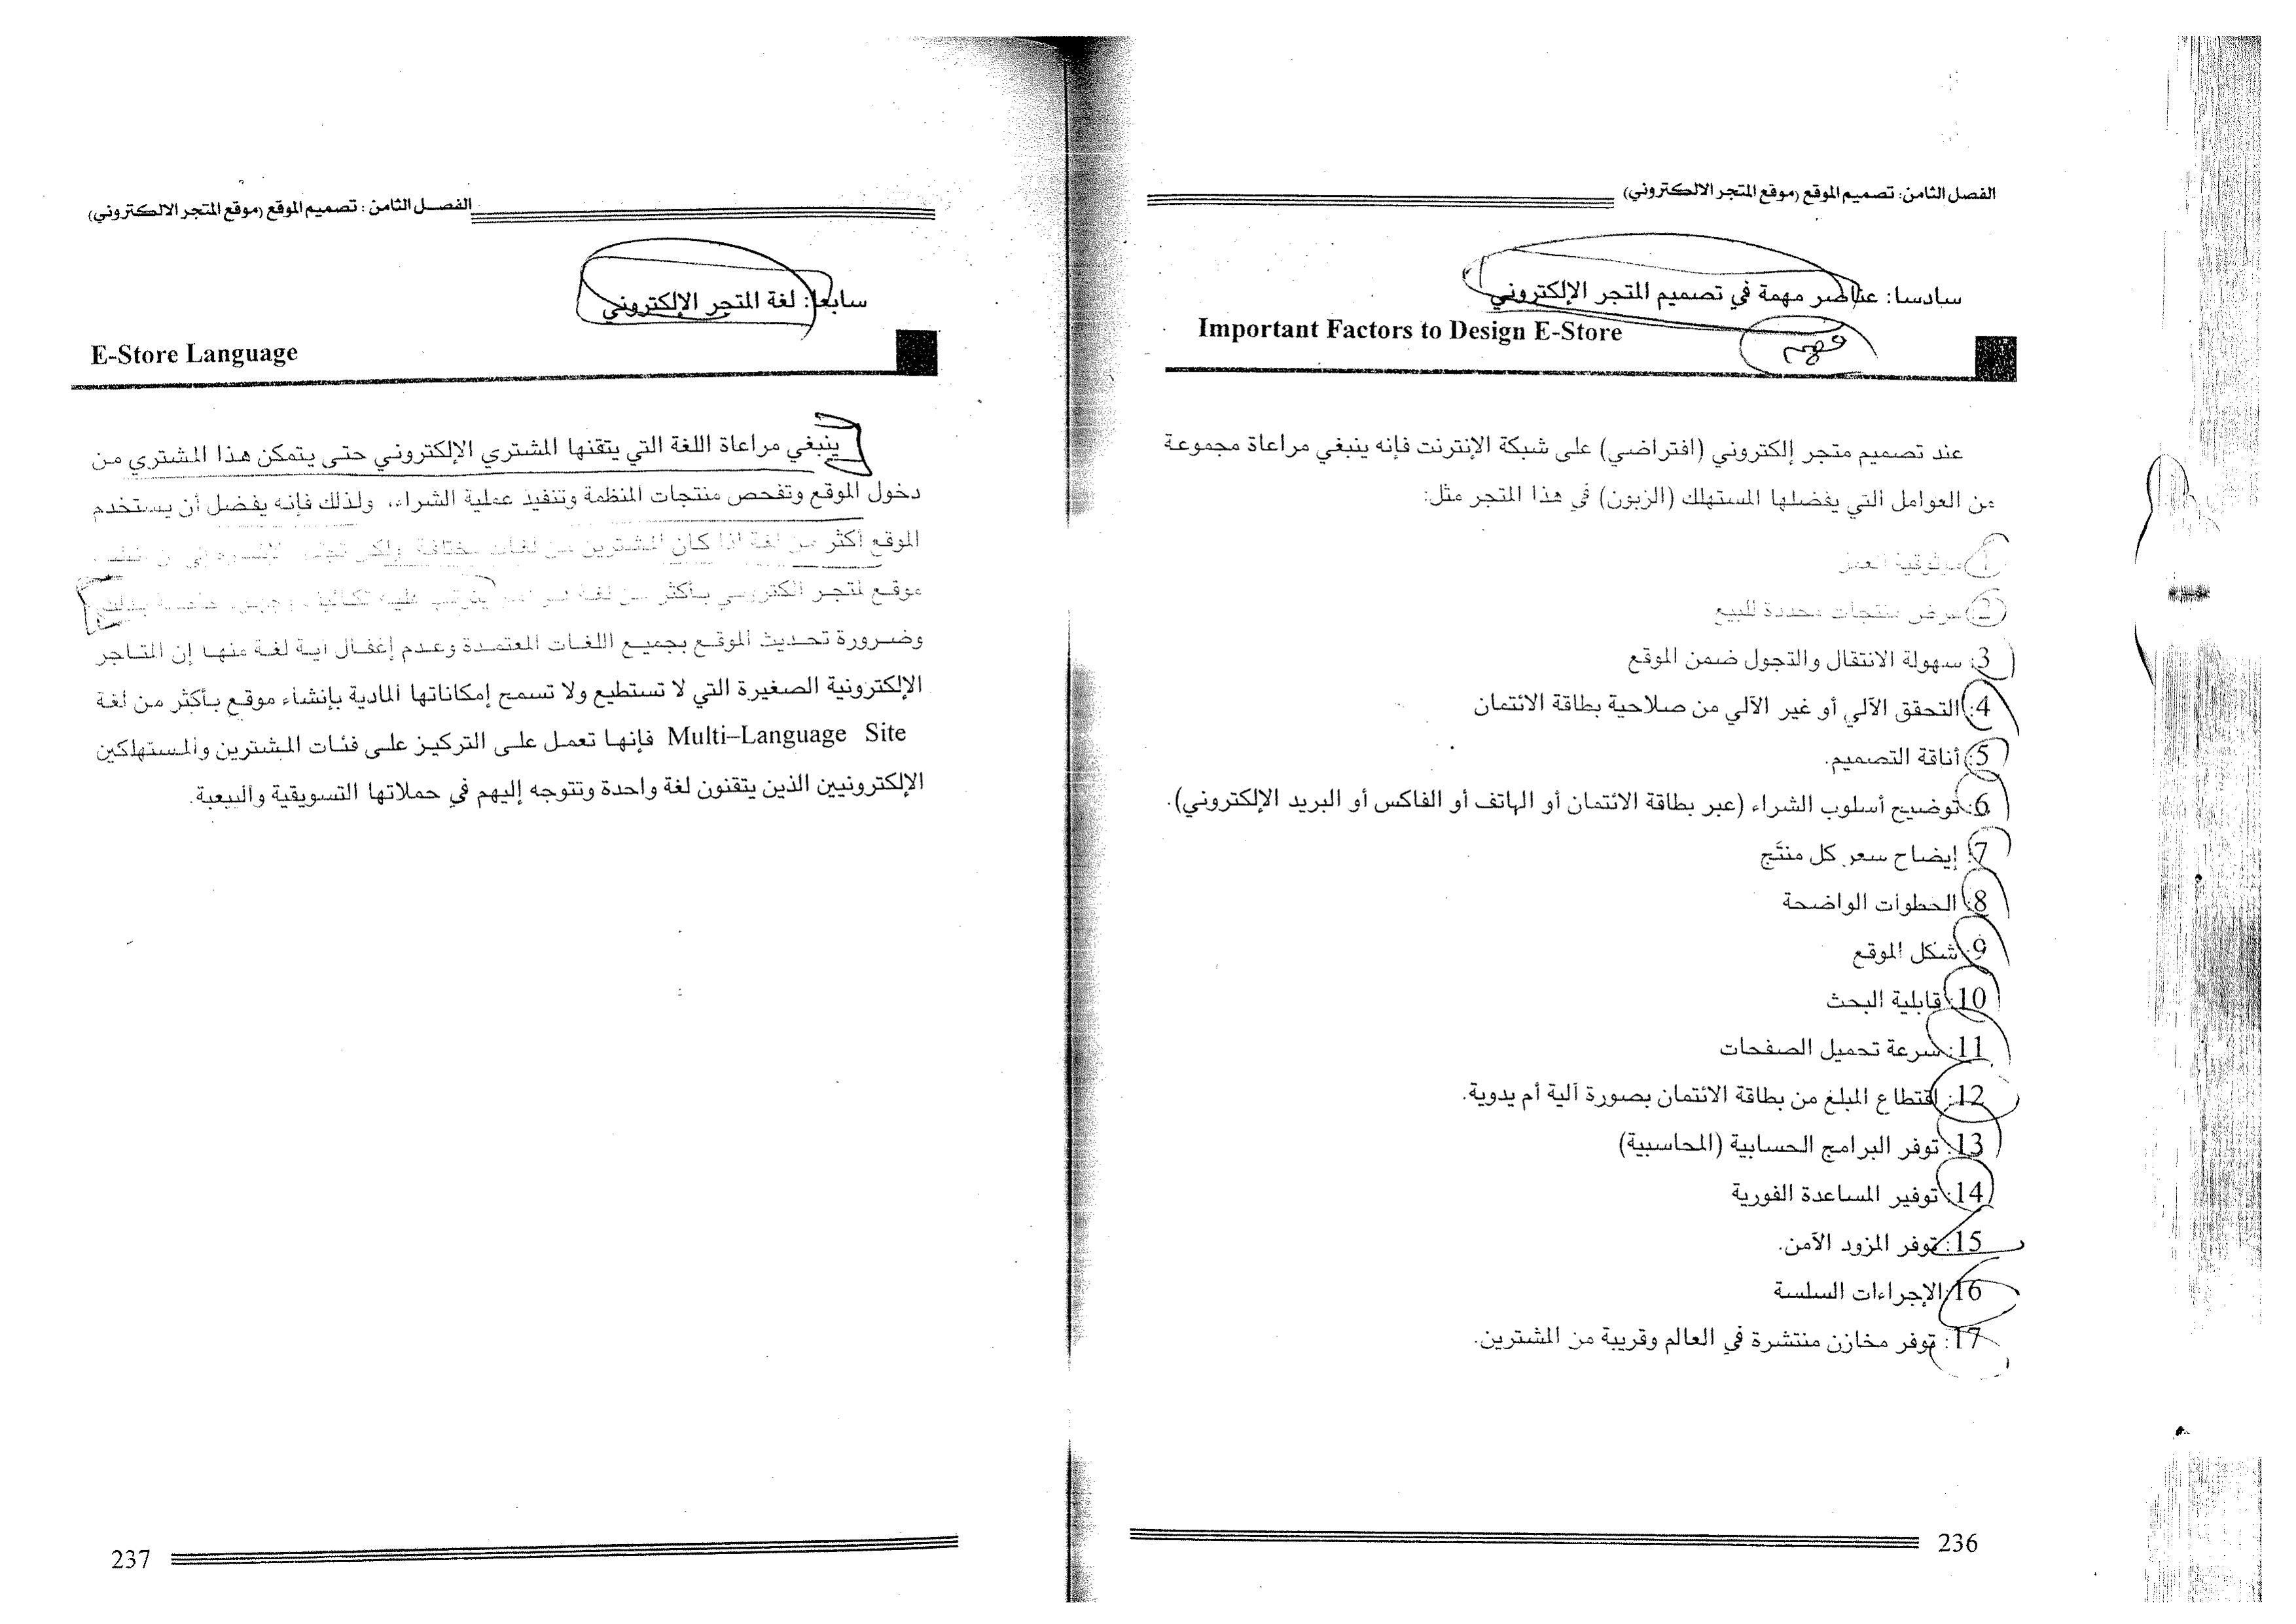 الفصل الثامن: تصميم الموقع (موقع المتجر الالكتروني)
سادسا: عناصر مهمة في تصميم المتجر الإلكتروني
Important Factors to Design E-Store
مهم
عند تصميم متجر إلكتروني (افتراضي) على شبكة الإنترنت فإنه ينبغي مراعاة مجموعة
من العوامل التي يفضلها المستهلك (الزبون) في هذا المتجر مثل:
1: موثوقية العمل
2: عرض منتجات محددة للبيع
3: سهولة الانتقال والتجول ضمن الموقع
4: التحقق الآلي أو غير الآلي من صلاحية بطاقة الائتمان
5: أناقة التصميم.
6: توضيح أسلوب الشراء (عبر بطاقة الائتمان أو الهاتف أو الفاكس أو البريد الإلكتروني).
7: إيضاح سعر كل منتَج
8: الخطوات الواضحة
9: شكل الموقع
10: قابلية البحث
11: سرعة تحميل الصفحات
12: اقتطاع المبلغ من بطاقة الائتمان بصورة آلية أم يدوية.
13: توفر البرامج الحسابية (المحاسبية)
14: توفير المساعدة الفورية
15: توفر المزود الآمن.
16: الإجراءات السلسة
17: توفر مخازن منتشرة في العالم وقريبة من المشترين.
236
الفصل الثامن : تصميم الموقع (موقع المتجر الالكتروني)
سابعا: لغة المتجر الإلكتروني
E-Store Language
ينبغي مراعاة اللغة التي يتقنها المشتري الإلكتروني حتى يتمكن هذا المشتري من
دخول الموقع وتفحص منتجات المنظمة وتنفيذ عملية الشراء، ولذلك فإنه يفضل أن يستخدم
الموقع أكثر من لغة اذا كان المشترين من لغات مختلفة ولكن تجدر الإشارة إلى أن
موقع لمتجر الكتروني بأكثر من لغة يترتب عليه تكاليف وجهود خاصة بذلك
وضرورة تحديث الموقع بجميع اللغات المعتمدة وعدم إغفال أية لغة منها إن المتاجر
الإلكترونية الصغيرة التي لا تستطيع ولا تسمح إمكاناتها المادية بإنشاء موقع بأكثر من لغة
Multi–Language Site فإنها تعمل على التركيز على فئات المشترين والمستهلكين
الإلكترونيين الذين يتقنون لغة واحدة وتتوجه إليهم في حملاتها التسويقية والبيعية.
237